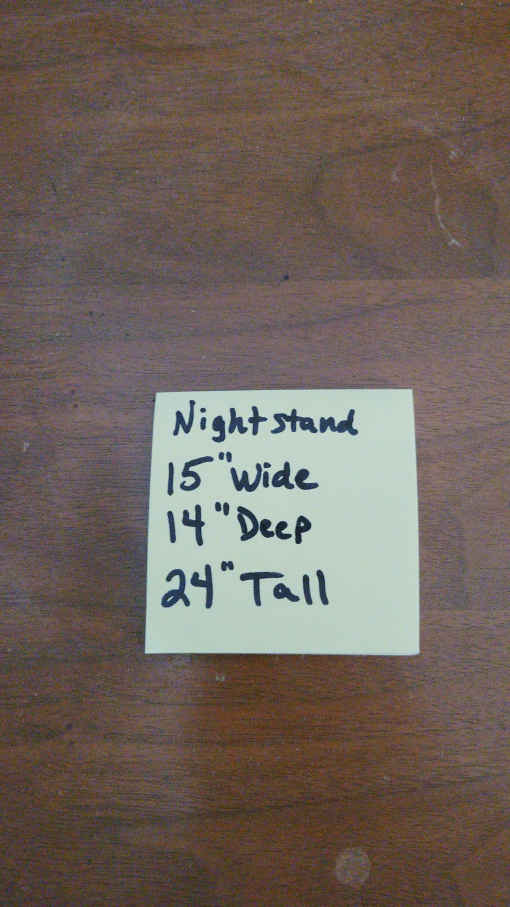 Nightstand
15" Wide
14" Deep
24" Tall